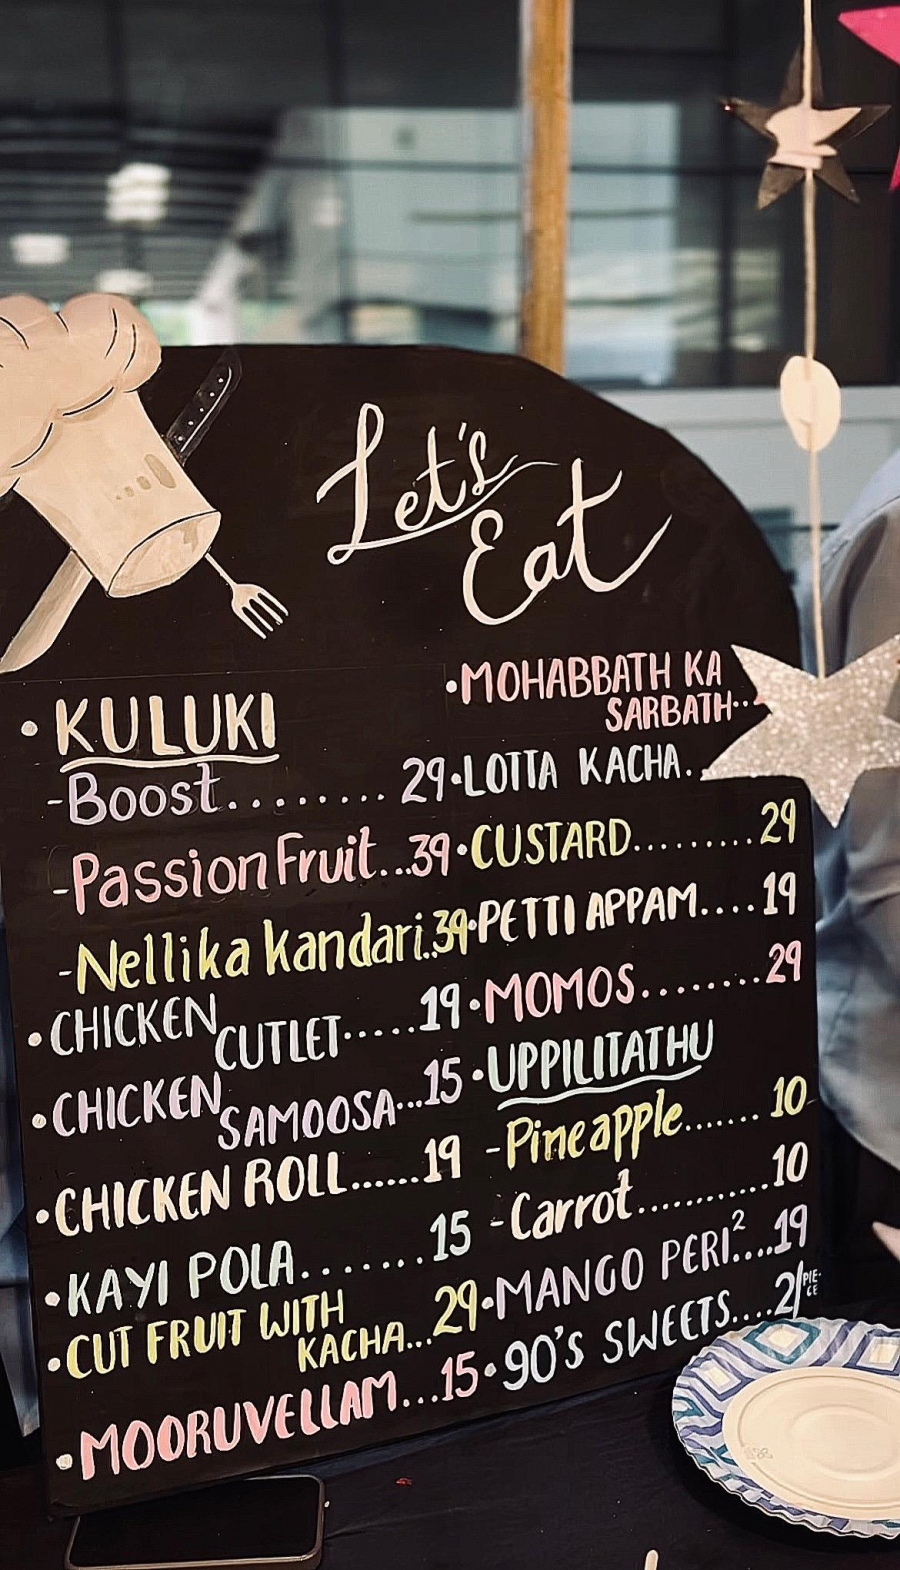 Let's
Eat
• KULUKI
-Boost........ 29
-Passion Fruit...39
-Nellika kandari..39
• CHICKEN
CUTLET.....19
• CHICKEN
SAMOOSA...15
• CHICKEN ROLL......19
• KAYI POLA.......15
• CUT FRUIT WITH
KACHA...29
• MOORUVELLAM...15
• MOHABBATH KA
SARBATH..
• LOTTA KACHA..
• CUSTARD.........29
• PETTI APPAM....19
• MOMOS........29
• UPPILITATHU
-Pineapple.......10
-Carrot............10
• MANGO PERI²....19
• 90'S SWEETS....2/PIE-
CE